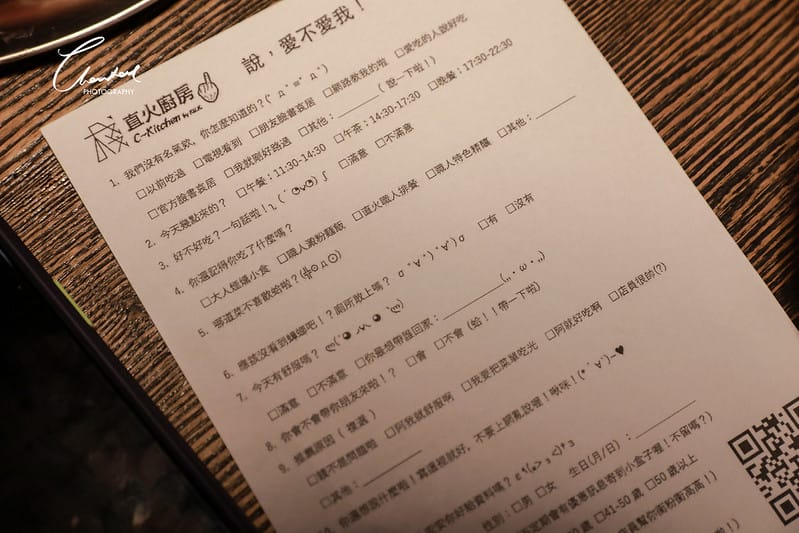 Chanderl
PHOTOGRAPHY
直火廚房
C-Kitchen by R&K
說，愛不愛我！
1. 我們沒有名氣欸，你怎麼知道的？(
□以前吃過 □電視看到 □朋友臉書哀居 □網路教我的啦 □愛吃的人說好吃
□官方臉書哀居 □我就剛好路過 □其他：______ ( 說一下啦！)
2. 今天幾點來的？ □午餐：11:30-14:30 □午茶：14:30-17:30 □晚餐：17:30-22:30
3. 好不好吃？一句話啦！ □滿意 □不滿意
4. 你還記得你吃了什麼嗎？
□大人 小食 □職人澱粉麵飯 □直火職人排餐 □職人特色精釀 □其他：______
5. 哪道菜不喜歡蛤啦？
6. 應該沒看到蟑螂吧！？廁所敢上嗎？ □有 □沒有
7. 今天有舒服嗎？
□滿意 □不滿意 □你最想帶誰回家：__________
8. 你會不會帶你朋友來啦！？ □會 □不會 (蛤！！帶一下啦)
9. 推薦原因 ( 複選 )
□錢不是問題啦 □阿我就舒服啊 □我要把菜單吃光 □阿就好吃啊 □店員很帥(?)
□其他：______
10. 你還想說什麼啦！寫這裡就好，不要上網亂說喔！啾咪！(*ˊ∀ˋ)~♥
你好給資料嗎？
性別：□男 □女 生日(月/日) ：______
不定期會有優惠訊息寄到小盒子喔！不留嗎？)
□41-50 歲 □50 歲以上
店員幫你衝粉衝高高！)